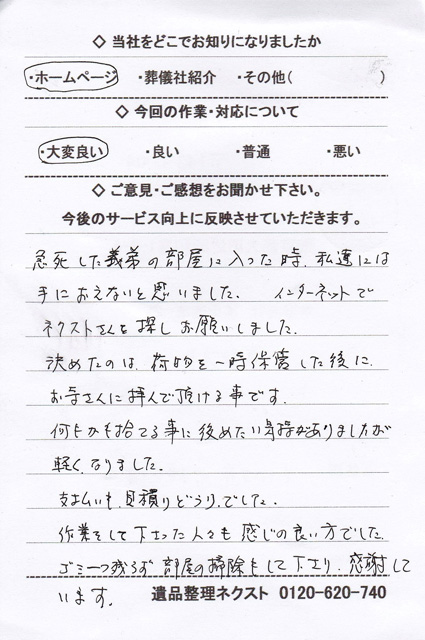 ◇ 当社をどこでお知りになりましたか
・ホームページ ・葬儀社紹介 ・その他( )
◇ 今回の作業・対応について
・大変良い ・良い ・普通 ・悪い
◇ ご意見・ご感想をお聞かせ下さい。
今後のサービス向上に反映させていただきます。
急死した義弟の部屋に入った時、私達には
手におえないと思いました。 インターネットで
ネクストさんを探しお願いしました。
決めたのは、荷物を一時保管した後に、
お寺さんに拝んで頂ける事です。
何もかも捨てる事に後めたい気持がありましたが
軽くなりました。
支払いも、見積りどうりでした。
作業をして下さった人々も感じの良い方でした。
ゴミ一つ残らず部屋の掃除もして下さり、感謝して
います。
遺品整理ネクスト 0120-620-740